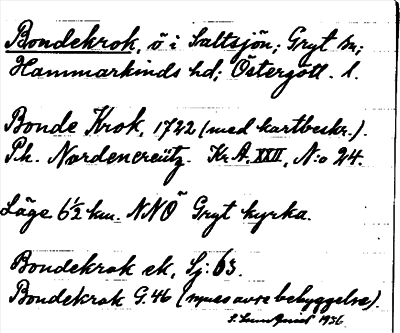 Bondekrok, ö i Saltsjön; Gryt sn;
Hammarkinds hd; Östergötl. l.
Bonde Krok, 1722 (med kartbeskr.).
Ph. Nordencreütz. Kr.A. XXII, N:o 24.
Läge 6½ km. NNÖ Gryt kyrka.
Bondekrok ek, Sj: 63.
Bondekrok G. 46 (mues avre bebyggelse).
1936